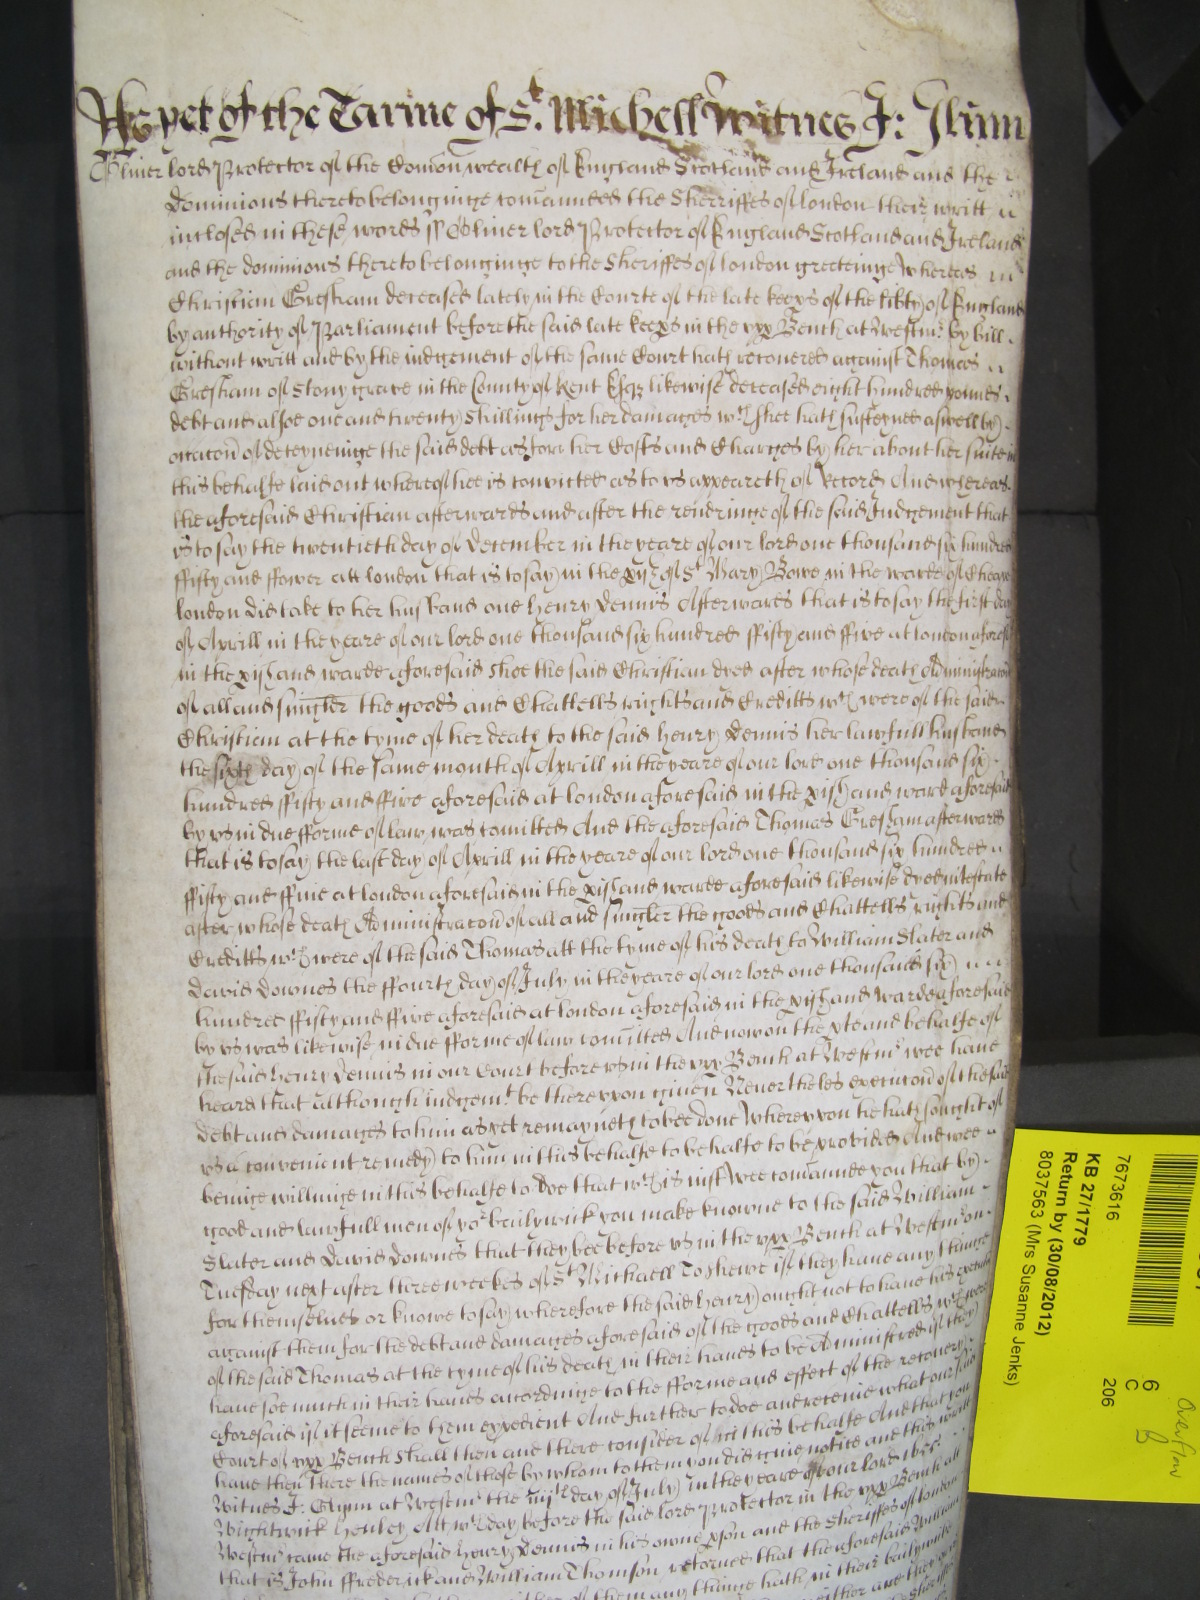 As yet of the Tarme of St. Michell Witnes J: Glynn
Oliver lord Protector of the Comon wealth of England Scotland and Ireland and the
dominions thereto belonginge comannded the Sherriffes of london their writt
inclosed in these words ss Oliver lord Protector of England Scotland and Ireland
and the dominions thereto belonginge to the Sheriffes of london greeteinge Whereas
Christian Gresham deceased lately in the Courte of the late keeps of the libty of England
by authority of Parliament before the said late keeps in the vpp Bench at Westmr. by bill
without writt and by the iudgement of the same Court hath recovered against Thomas
Gresham of Stony grave in the County of Kent Esqr likewise deceased eight hundred pounds
debt and alsoe one and twenty shillings for her damages wch shee hath susteyned aswell by
occacon of deteyneinge the said debt as for her Costs and Charges by her about her suite in
this behalfe laid out whereof hee is convicted as to vs appeareth of Record And whereas
the aforesaid Christian afterwards and after the rendringe of the said Judgement that
is to say the twentieth day of December in the yeare of our lord one thousand six hundred
ffifty and ffower att london that is to say in the pish of St Mary Bowe in the warde of Cheape
london did take to her husband one Henry Dennis Afterwards that is to say the first day
of Aprill in the yeare of our lord one thousand six hundred ffifty and ffive at london aforesd
in the pish and warde aforesaid shee the said Christian dyed after whose death Administracon
of all and singler the goods and Chattells rights and Creditts wch were of the said
Christian at the tyme of her death to the said Henry Dennis her lawfull husband
the sixth day of the same month of Aprill in the yeare of our lord one thousand six
hundred ffifty and ffive aforesaid at london aforesaid in the pish and ward aforesaid
by vs in due fforme of law was comitted And the aforesaid Thomas Gresham afterwards
that is to say the last day of Aprill in the yeare of our lord one thousand six hundred
ffifty and ffive at london aforesaid in the pish and warde aforesaid likewise dyed intestate
after whose death Administracon of all and singler the goods and Chattells rights and
Creditts wch were of the said Thomas att the tyme of his death to William Slater and
David Downes the ffourth day of July in the yeare of our lord one thousand six
hundred ffifty and ffive aforesaid at london aforesaid in the pish and warde aforesaid
by vs was likewise in due fforme of law comitted And now on the pte and behalfe of
the said Henry Dennis in our Court before vs in the vpp Bench at Westmr wee have
heard that although iudgemt be therevpon given Neverthelés execucon of the said
debt and damages to him as yet remayneth to bee done Wherevpon he hath sought of
vs a convenient remedy to him in this behalfe to behalfe to be provided And wee
beinge willinge in this behalfe to doe that wch is iust Wee comannde you that by
good and lawfull men of yor bailywick you make knowne to the said William
Slater and David Downes that they bee before vs in the vpp Bench at Westmr on
Tuesday next after three weekes of St Michaell To shewe if they have any thinge
for themselves or knowe to say wherefore the said Henry ought not to have his execucon
against them for the debt and damages aforesaid of the goods and Chattells wch were
of the said Thomas at the tyme of his death in their hands to be Administred if they
have soe much in their hands accordinge to the fforme and effect of the recovery
aforesaid if it seeme to them expedient And further to doe and receive what our said
Court of vpp Bench shall then and there consider of in this behalfe And that you
have then there the names of those by whom to them you did give notice and this writt
Witnes J. Glynn at Westmr the iiijth day of July in the yeare of our lord 1655
Wightwick Henley Att wch day before the said lord Protector in the vpp Bench att
Westmr came the aforesaid Henry Dennis in his owne pson and the Sheriffes of london
that is John ffrederick and William Thomson retorned that the aforesaid William
of them any thinge hath in their bailywick
7673616
KB 27/1779
Return by (30/08/2012)
8037563 (Mrs Susanne Jenks)
6
C
206
Overflow
B